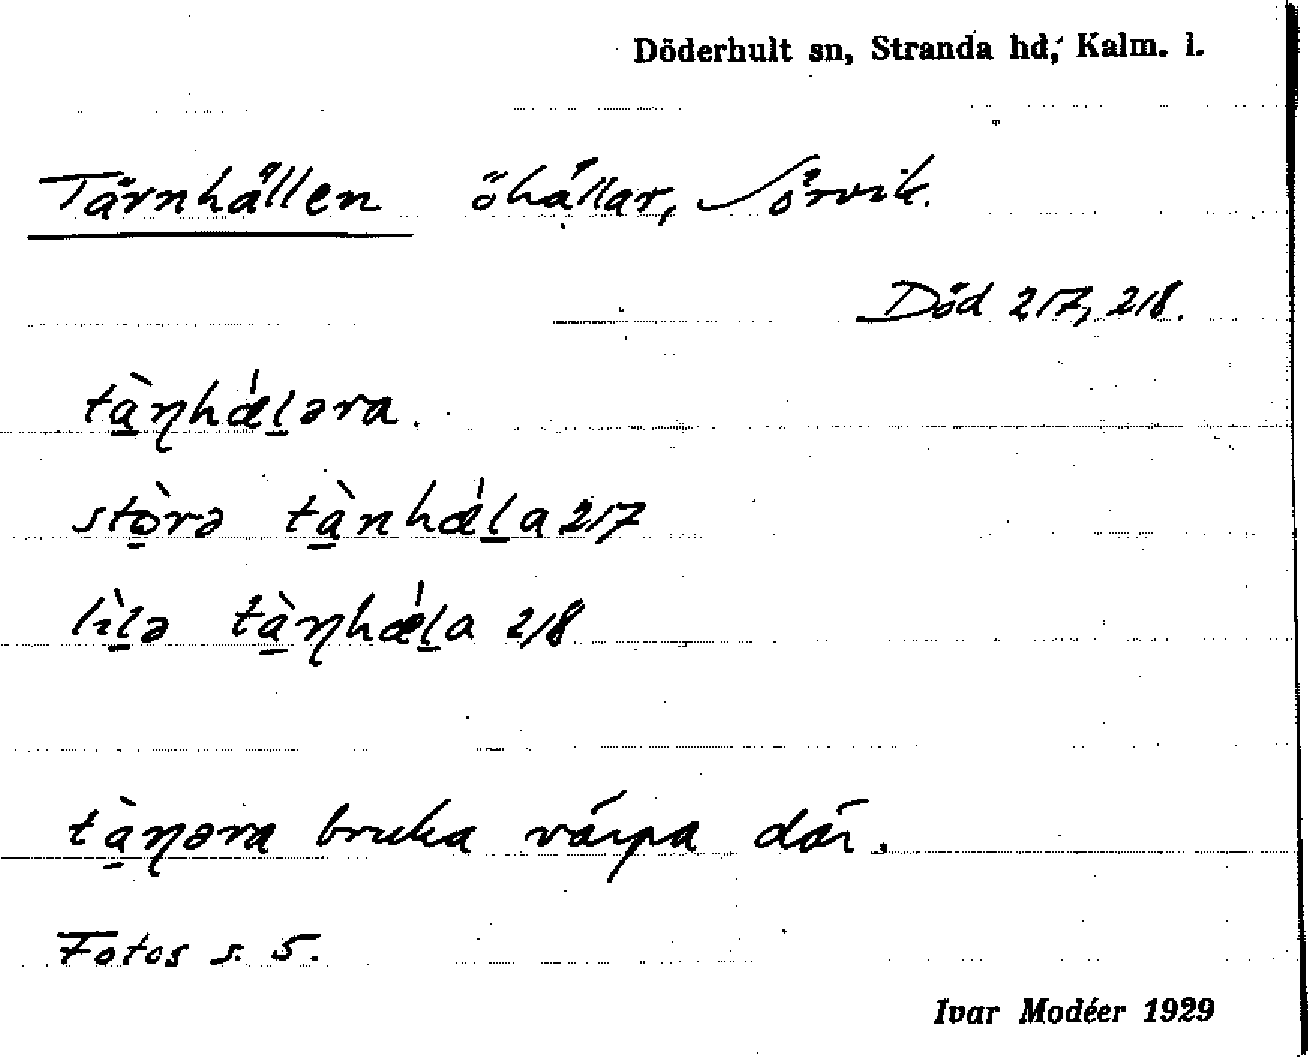 Döderhult sn, Stranda hd, Kalm. l.
Tärnhällen öhällar, Sörvik.
Död 217, 218.
tà̱ŋhǽḻəra.
stò̱rə tà̱nhǽḻa 217
lìḻə tà̱ŋhǽḻa 218
tà̱ŋəra bruka värpa där.
Fotos s. 5.
Ivar Modéer 1929